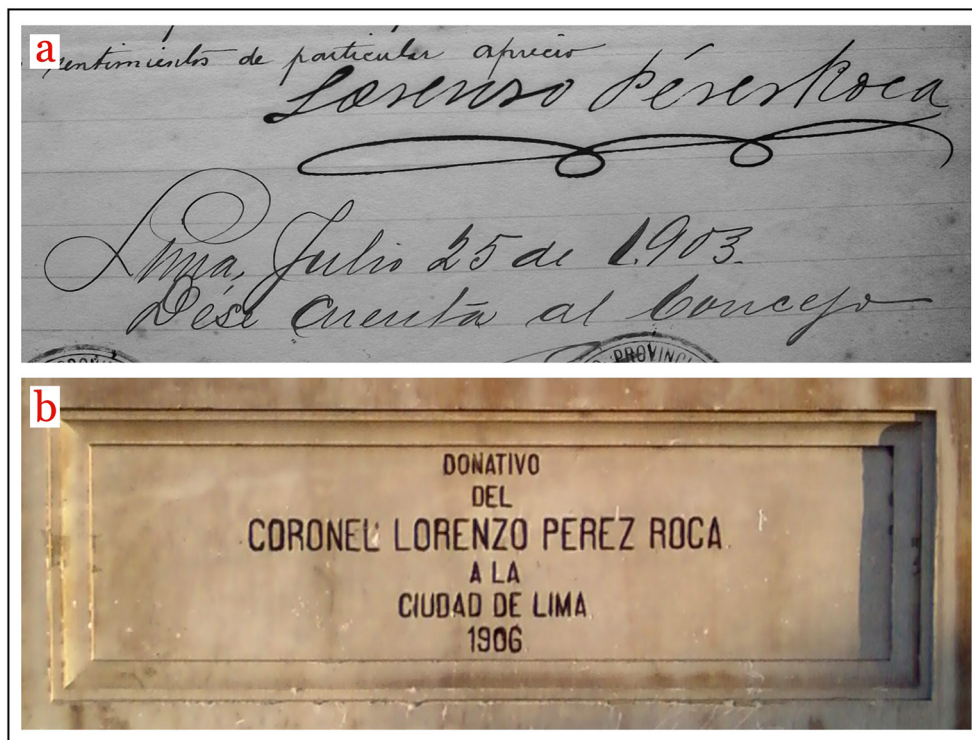 a
sentimientos de particular aprecio
Lorenzo Pérez Roca
Lima, Julio 25 de 1.903.
Dése cuenta al Concejo
PROVINCI
b
DONATIVO
DEL
CORONEL LORENZO PEREZ ROCA
A LA
CIUDAD DE LIMA
1906